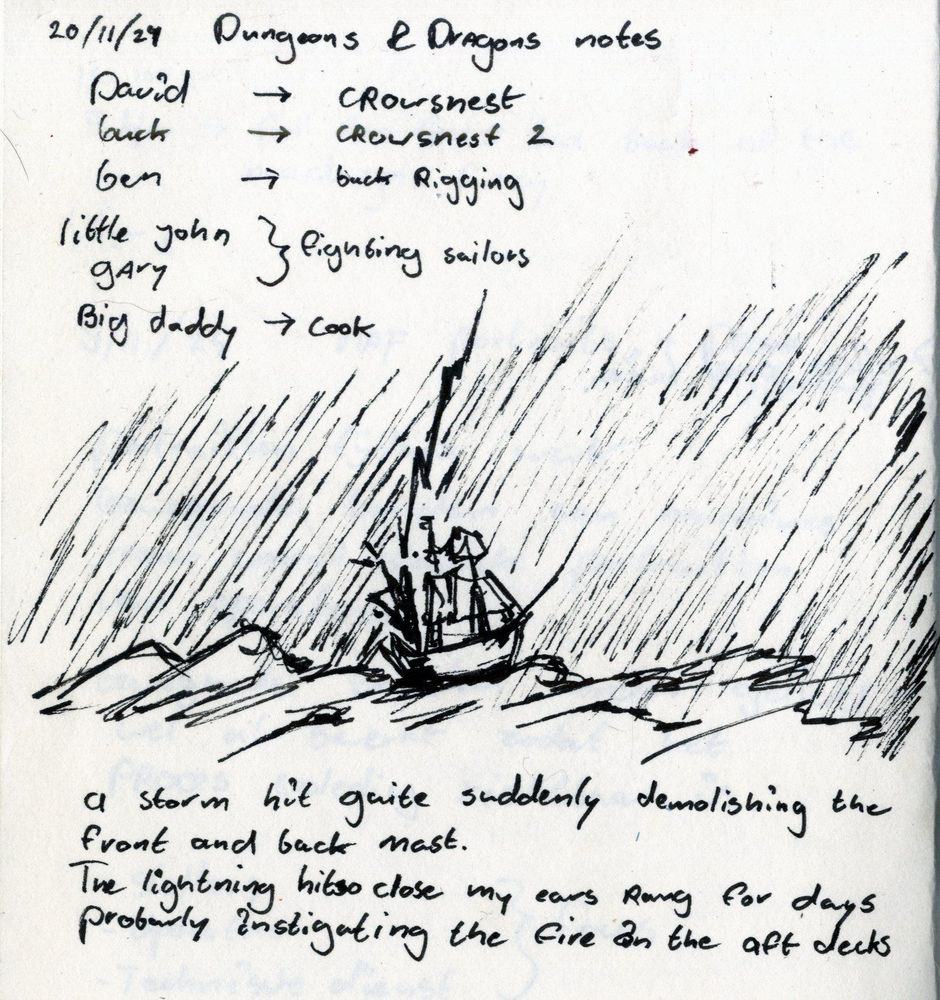 20/11/24 Dungeons & Dragons notes
David → CRowsnest
buck → CRowsnest 2
ben → back Rigging
little john } fighting sailors
gary
Big daddy → cook
a storm hit quite suddenly demolishing the
front and back mast.
The lightning hit so close my ears Rang for days
probarly instigating the fire on the aft decks